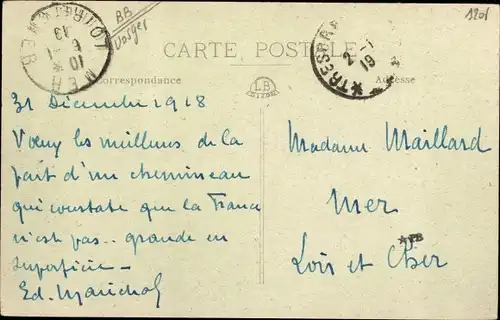 BB
Vosges
1201
CARTE POSTALE
Correspondance
Adresse
LB
31 Décembre 1918
Vœux les meilleurs de la
part d'un chemineau
qui constate que la France
n'est pas.. grande en
superficie –
Ed. Marichal
Madame Maillard
Mer
Loir et Cher
MER
LOIR-ET-
2 - 1
19